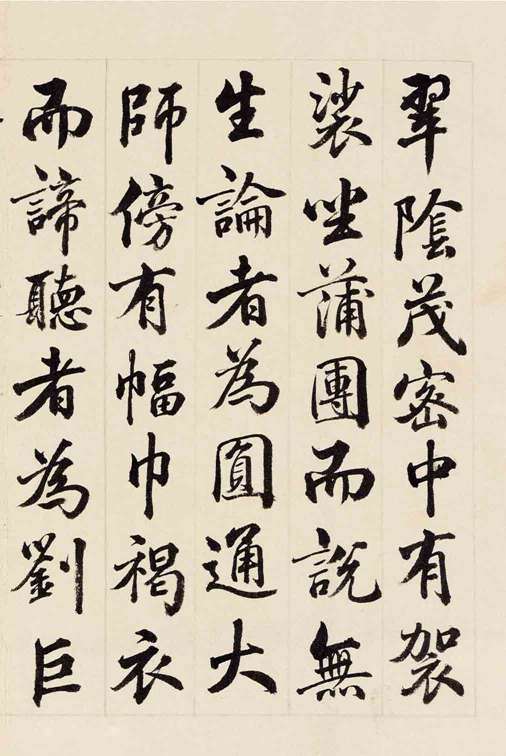 翠陰茂密中有袈
裟坐蒲團而說無
生論者為圓通大
師傍有幅巾褐衣
而諦聽者為劉巨